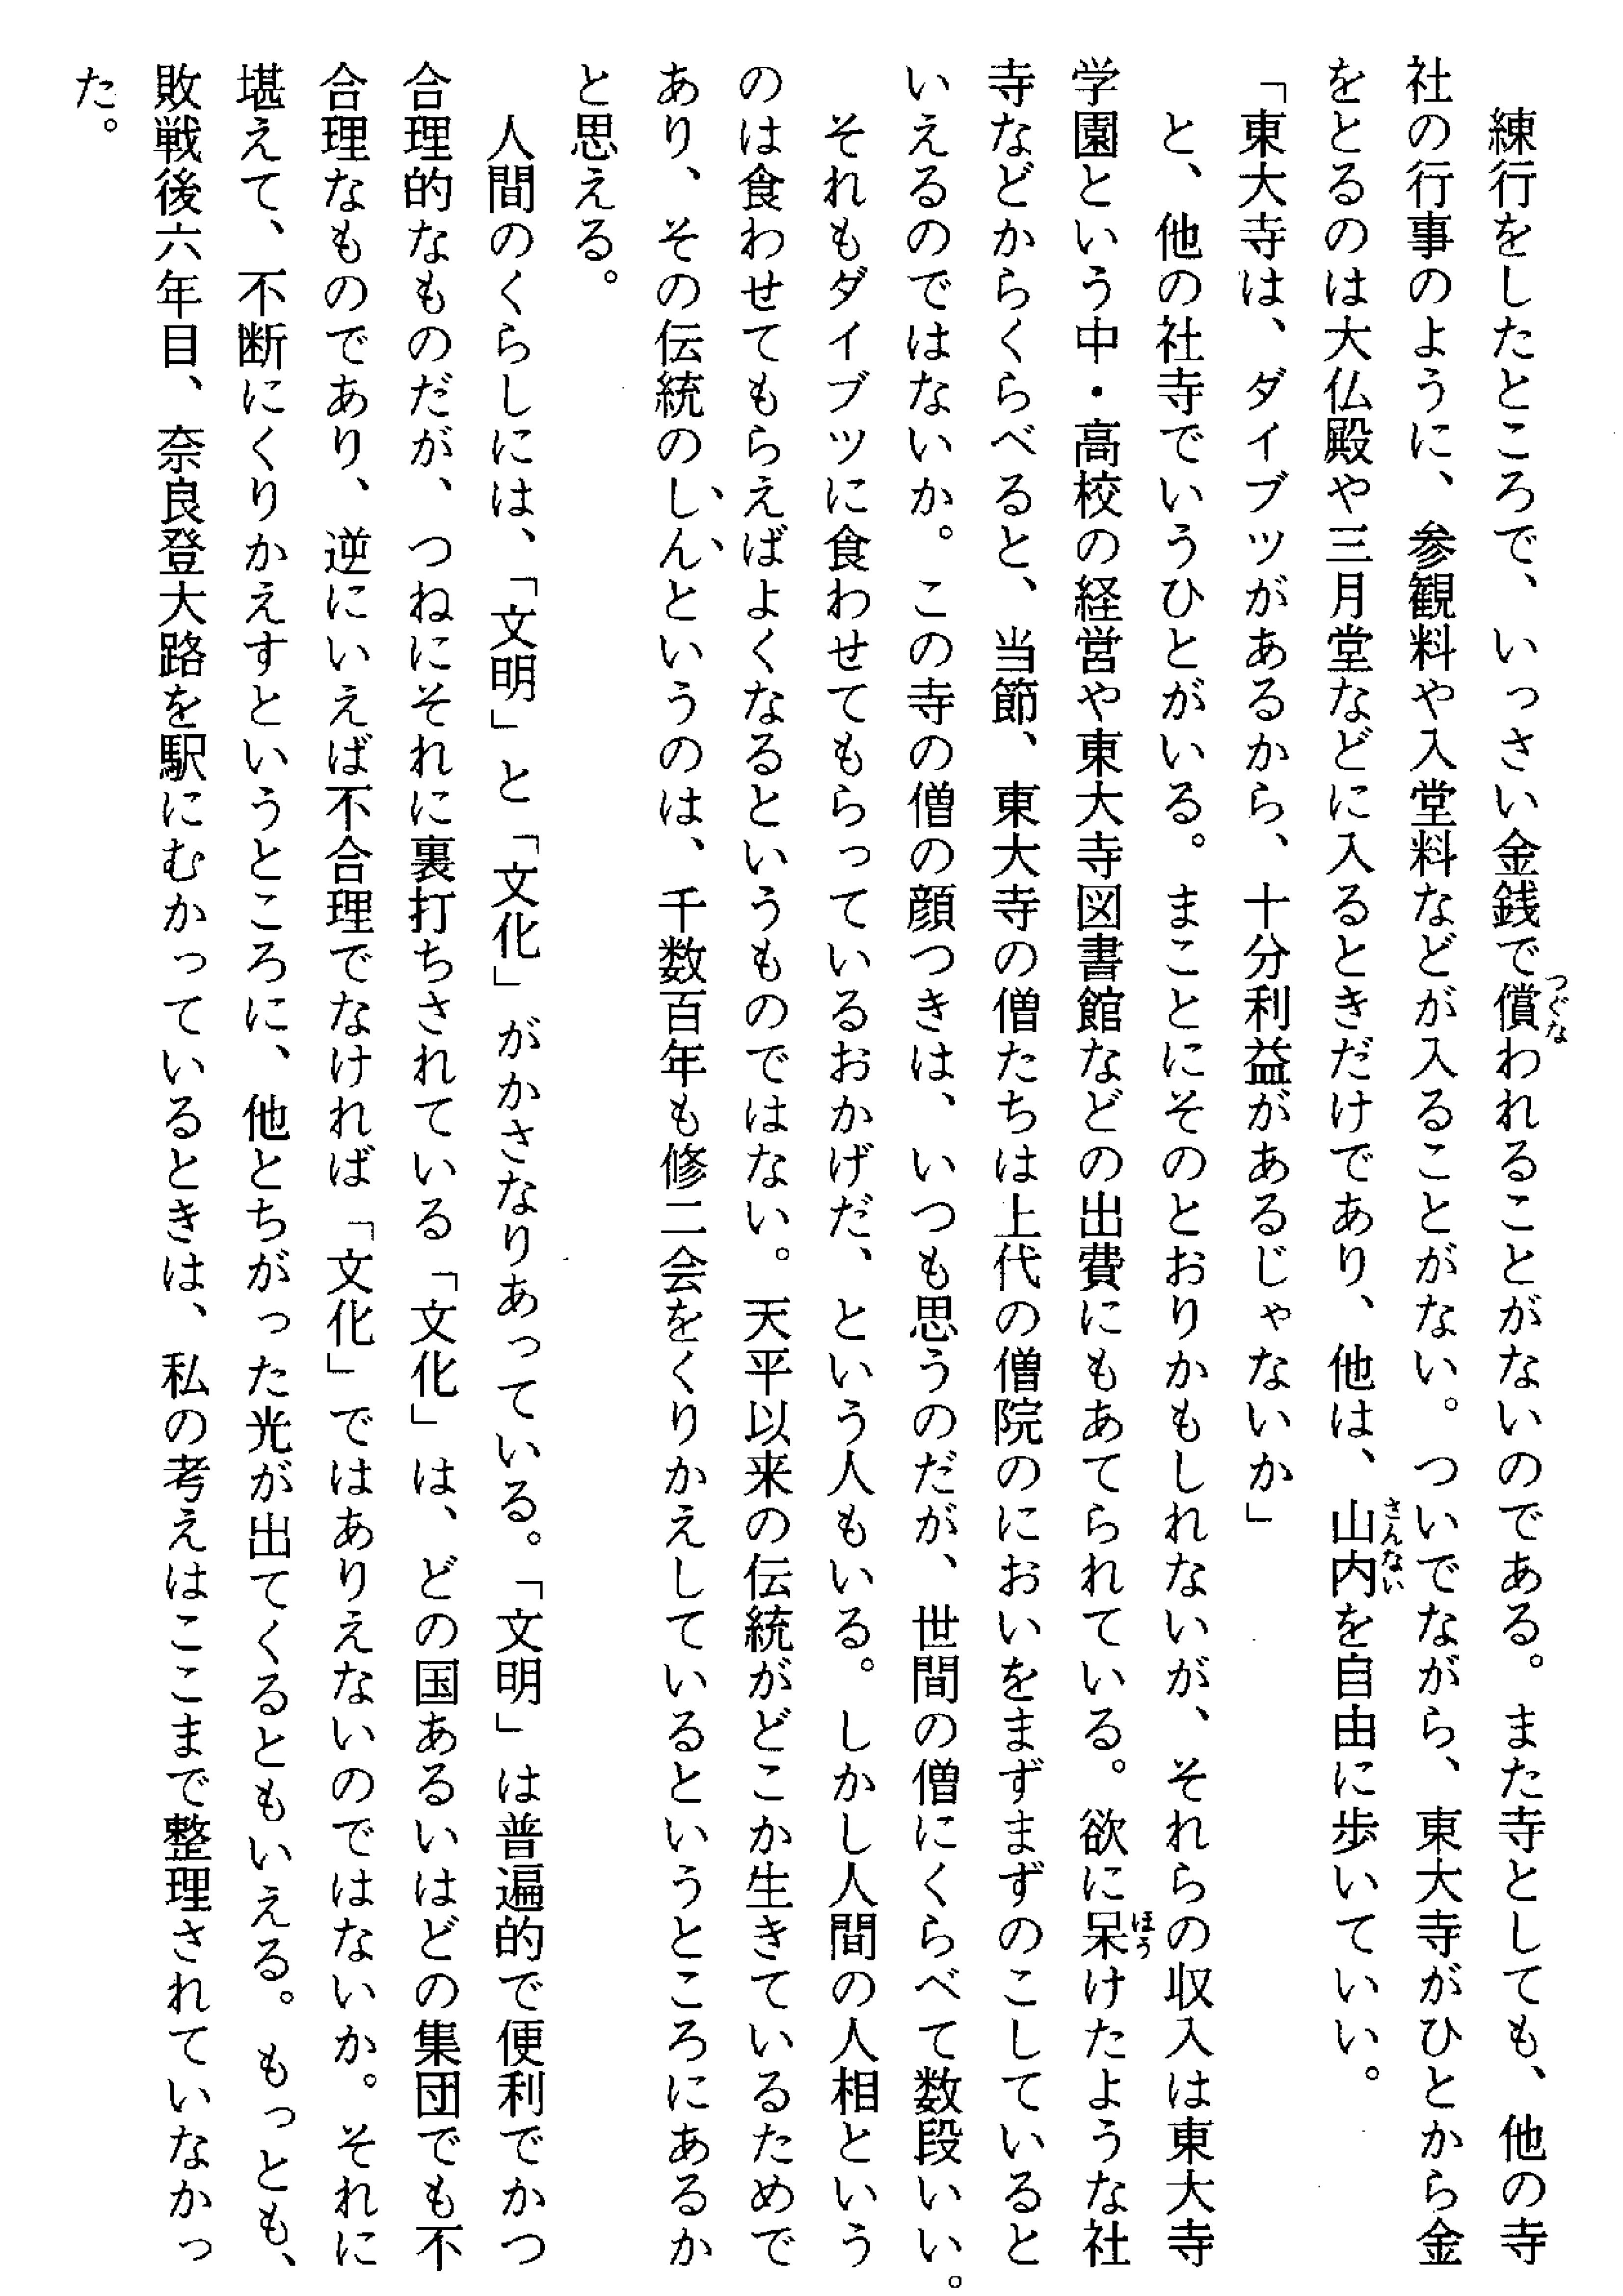 練行をしたところで、いっさい金銭で償われることがないのである。また寺としても、他の寺
社の行事のように、参観料や入堂料などが入ることがない。ついでながら、東大寺がひとから金
をとるのは大仏殿や三月堂などに入るときだけであり、他は、山内を自由に歩いていい。
「東大寺は、ダイブツがあるから、十分利益があるじゃないか」
　と、他の社寺でいうひとがいる。まことにそのとおりかもしれないが、それらの収入は東大寺
学園という中・高校の経営や東大寺図書館などの出費にもあてられている。欲に呆けたような社
寺などからくらべると、当節、東大寺の僧たちは上代の僧院のにおいをまずまずのこしていると
いえるのではないか。この寺の僧の顔つきは、いつも思うのだが、世間の僧にくらべて数段いい。
　それもダイブツに食わせてもらっているおかげだ、という人もいる。しかし人間の人相という
のは食わせてもらえばよくなるというものではない。天平以来の伝統がどこか生きているためで
あり、その伝統のしんというのは、千数百年も修二会をくりかえしているというところにあるか
と思える。
　人間のくらしには、「文明」と「文化」がかさなりあっている。「文明」は普遍的で便利でかつ
合理的なものだが、つねにそれに裏打ちされている「文化」は、どの国あるいはどの集団でも不
合理なものであり、逆にいえば不合理でなければ「文化」ではありえないのではないか。それに
堪えて、不断にくりかえすというところに、他とちがった光が出てくるともいえる。もっとも、
敗戦後六年目、奈良登大路を駅にむかっているときは、私の考えはここまで整理されていなかっ
た。